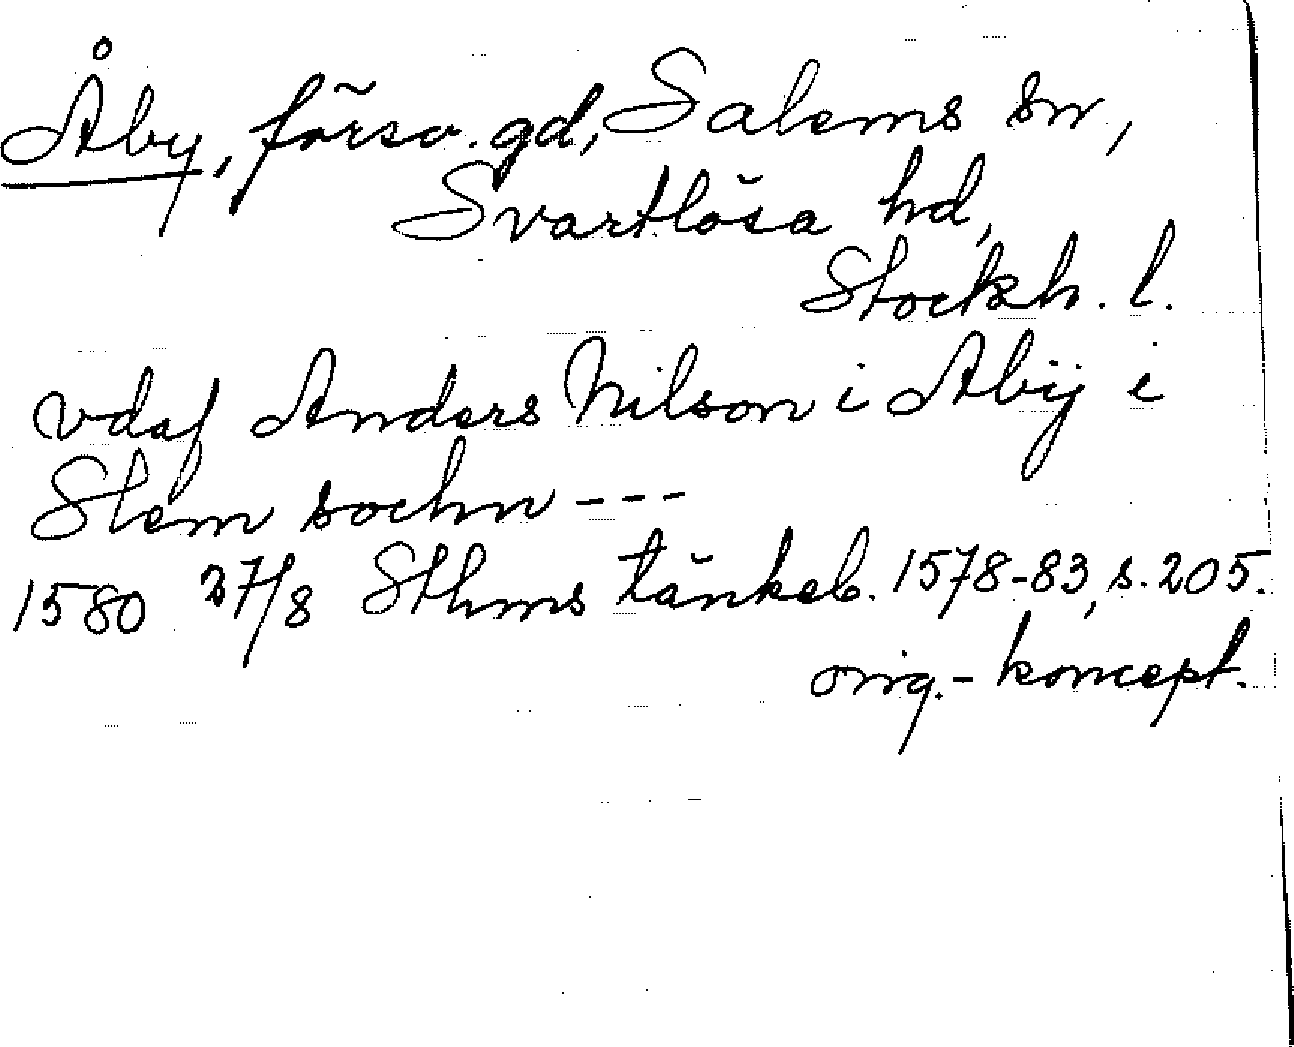 Åby, försv. gd, Salems sn,
Svartlösa hd,
Stockh. l.
vdaf Anders Nilson i Abÿ i
Slem sochn ---
1580 27/8 Sthms tänkeb. 1578-83, s. 205.
orig.- koncept.